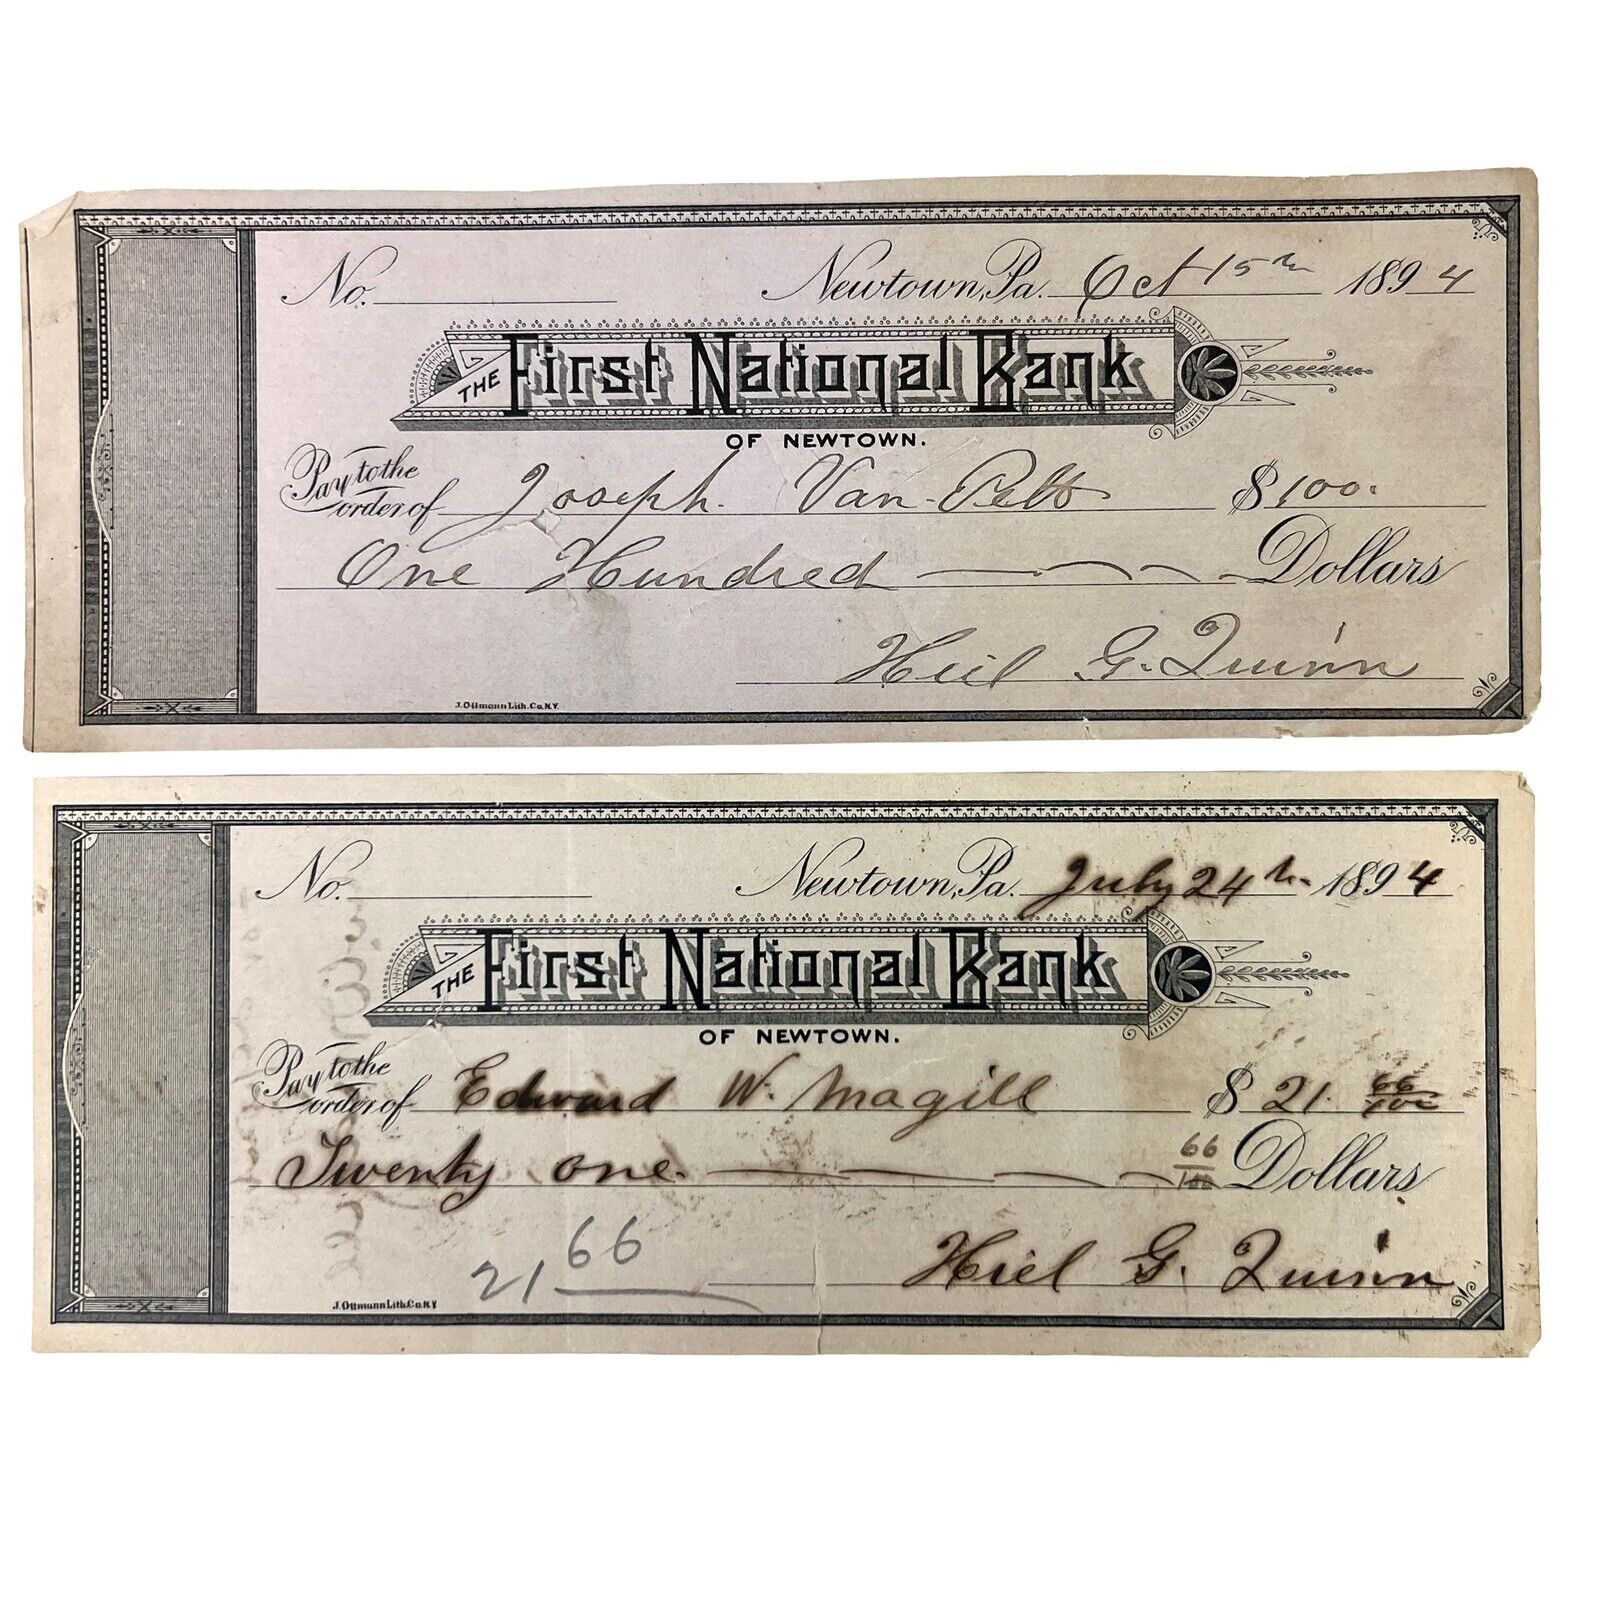 No. Newtown, Pa. Oct 15th 1894
THE First National Bank
OF NEWTOWN.
Pay to the
order of Joseph. Van Pelt $100.
One Hundred Dollars
Hiel G. Quinn
J. Ottmann Lith. Co. N.Y.
No. Newtown, Pa. July 24th 1894
THE First National Bank
OF NEWTOWN.
Pay to the
order of Edward W. Magill $ 21. 66/100
Twenty one. 66/100 Dollars
21 66
Hiel G. Quinn
J. Ottmann Lith. Co. N.Y.